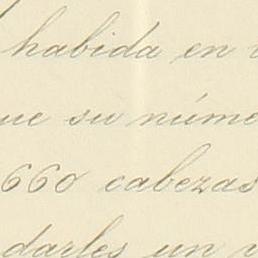 habida en
ue su núme
660 cabezas
darles un v